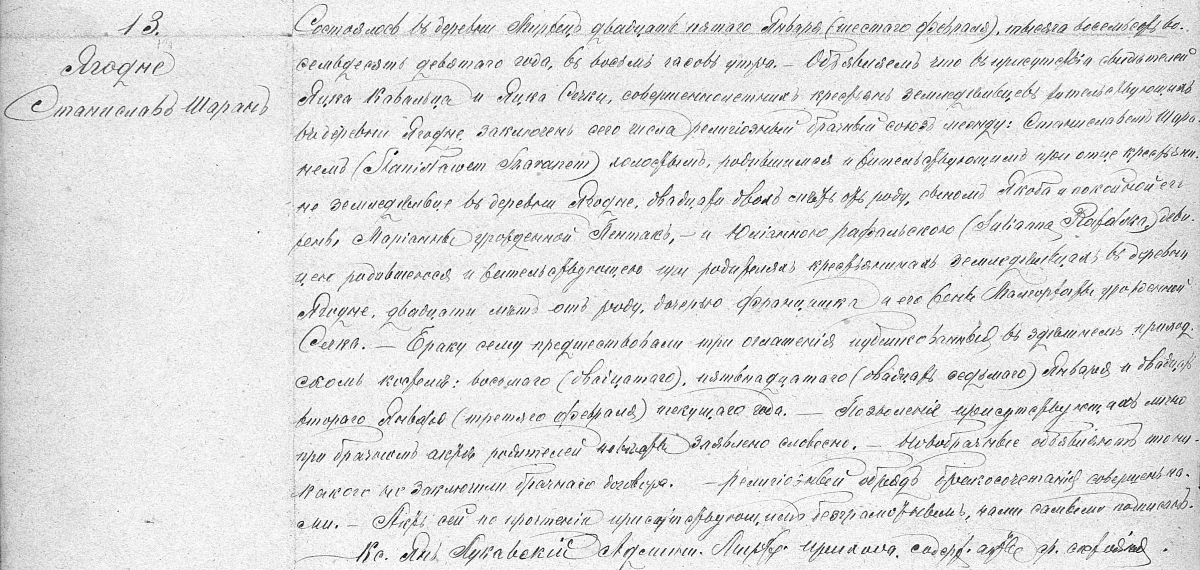 13.
Ягодне
Станиславъ Шаранъ
Состоялось въ деревни двадцать пятаго Января (шестаго февраля), тысяча восемьсотъ во-
семьдесятъ девятаго года, въ восемь часовъ утра. — Объявляемъ что въ присутствіи свидѣтелей
Яцка Кавальца и Яцка Сечки, совершеннолетнихъ крестьянъ земледѣльцевъ жительствующихъ
въ деревни Ягодне заключенъ сего числа религіозный брачный союзъ между: Станиславомъ Шара-
немъ (Stanisławem Szaranem) холостымъ, родившимся и жительствующимъ при отце крестьяни-
не земледѣльце въ деревни Ягодне, двадцати двохъ лѣтъ отъ роду, сыномъ Якоба и покойной его
жены Маріанны урожденной Пентакъ, — и Юліанною Рафальскою (Julianna Rafalska) деви-
цею родившеюся и жительствующею при родителяхъ крестьянинахъ земледѣльцахъ въ деревни
Ягодне, двадцати лѣтъ отъ роду, дочерью Францишка и его жены Малгоржаты урожденной
— Браку сему предшествовали три оглашенія публикованныя въ здѣшнемъ приход-
скомъ костеле: восьмаго (двадцатаго), пятьнадцатаго (двадцать седьмаго) Января и двадцать
втораго Января (третяго февраля) текущаго года. — Позволеніе присутствующихъ лично
при брачномъ актѣ родителей невѣсты заявлено словесно. — Новобрачные объявляютъ что ни-
какого не заключили брачнаго договора. — религіозный обрядъ бракосочетанія совершенъ на-
ми. — Актъ сей по прочтеніи присутствующимъ безграмотнымъ, нами самыми подписанъ.
Кс. Янъ Лукавскій Админ. прихода, содерж. акты гр. состоянія.